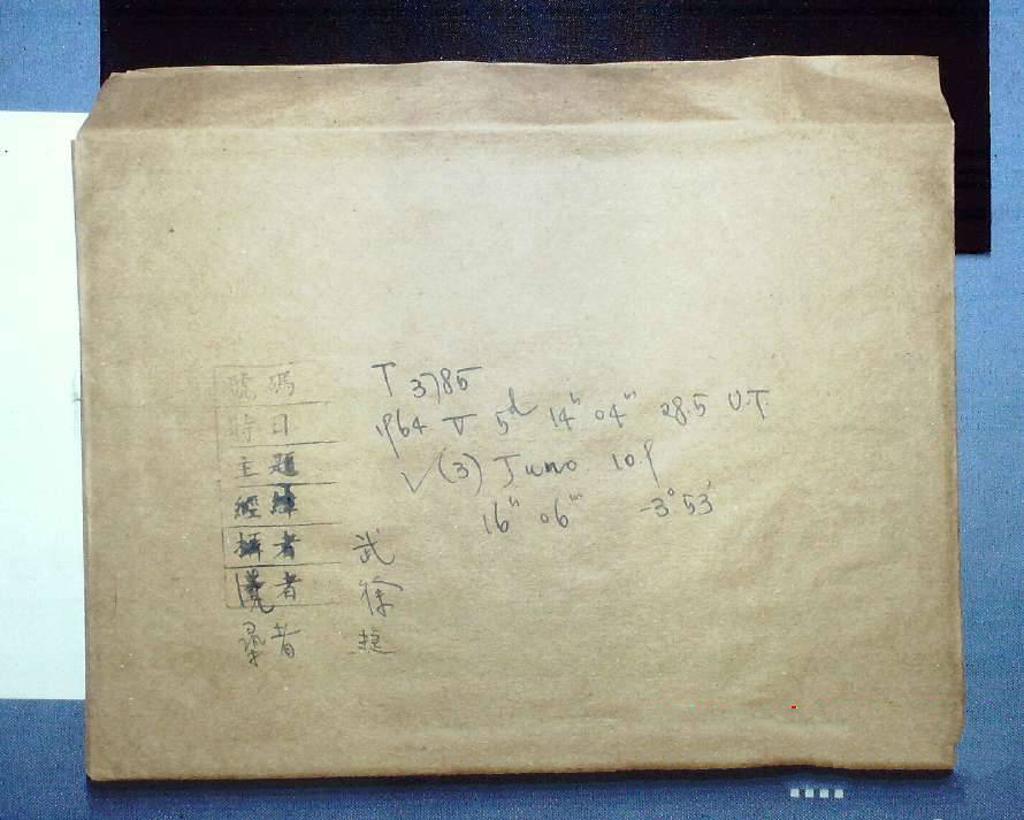 號碼 T 3785
時日 1964 V 5d 14h 04m 28.5 U.T.
主題 ✓ (3) Juno 10.9
經緯 16h 06m -3° 53'
攝者 武
者 徐
者